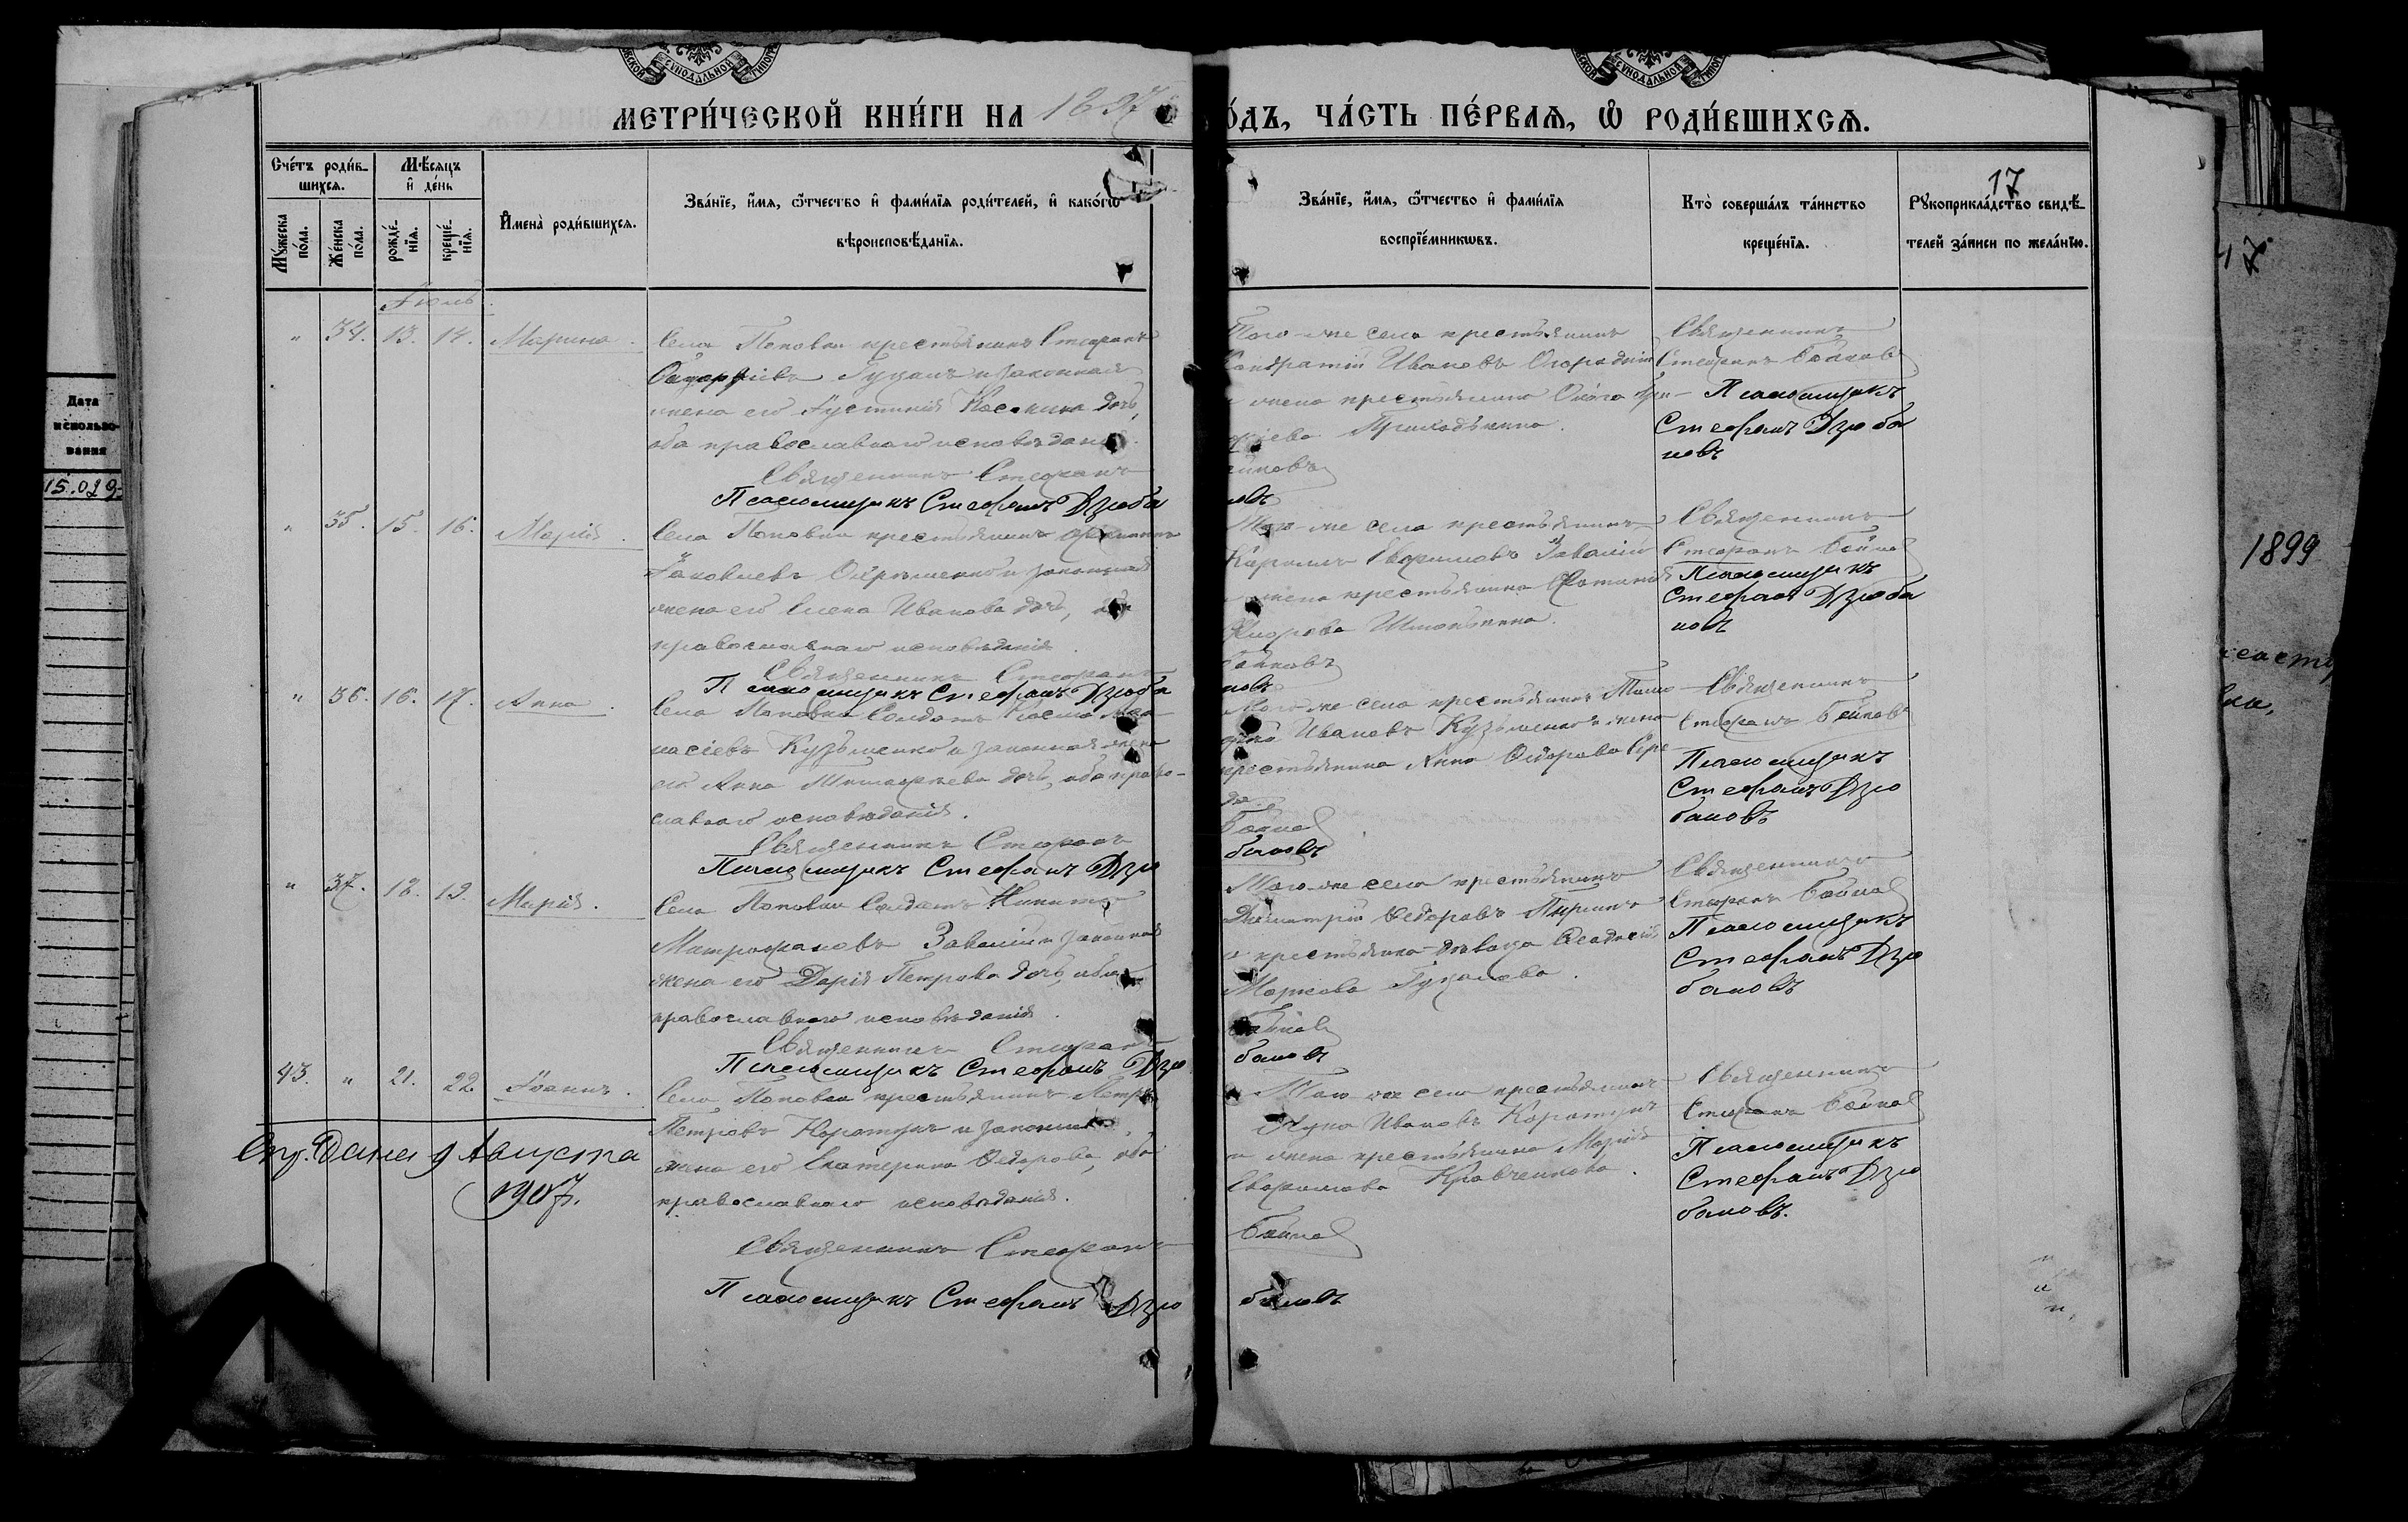 МЕТРИ́ЧЕСКОЙ КНИ́ГИ НА 1897
О́ДЪ, ЧА́СТЬ ПЕ́РВАѦ, Ѡ РОДИ́ВШИХСѦ.
17
Сче́тъ роди́в-
шихсѧ.
Мꙋ́жеска по́ла.
Же́нска по́ла.
Мѣ́сѧцъ
и де́нь
рожде́-
нїѧ.
креще́-
нїѧ.
Имена̀ роди́вшихсѧ.
Зва́нїе, и́мѧ, ѻ́тчество и фами́лїѧ роди́телей, и како́гѡ
вѣроисповѣ́данїѧ.
Зва́нїе, и́мѧ, ѻ́тчество и фами́лїѧ
воспрїе́мникѡвъ.
Кто̀ соверша́лъ та́инство
креще́нїѧ.
Рꙋкоприкла́дство свидѣ́-
телей за́писи по жела́нїю.
Іюль.
" 34. 13. 14. Марина.
Села Поповки крестьянинъ Стефанъ
Гуцалъ и законная
жена его Іустинія Космина дочь,
оба православнаго исповѣданія.
Священникъ Стефанъ
Псаломщикъ Стефанъ Дзюба
Того-же села крестьянинъ
Кондратій Ивановъ
жена крестьянина
Приходькина.
новъ
Священникъ
Стефанъ Бойковъ
Псаломщикъ
Стефанъ Дзюба
новъ
" 35. 15. 16. Марія.
Села Поповки крестьянинъ
Яковлевъ и законная
жена его Елена Иванова дочь, оба
православнаго исповѣданія.
Священникъ Стефанъ
Псаломщикъ Стефанъ Дзюба
Того-же села крестьянинъ
Кириллъ Завалій
жена крестьянина
Бойковъ
новъ
Священникъ
Стефанъ Бойковъ
Псаломщикъ
Стефанъ Дзюба
новъ
" 36. 16. 17. Анна.
Села Поповки Солдатъ Косма Афа-
насіевъ Кузьменко и законная жена
его Анна дочь, оба право-
славнаго исповѣданія.
Священникъ Стефанъ
Псаломщикъ Стефанъ Дзю
Того-же села крестьянинъ Тимо
фей Ивановъ Кузьменко и жена
крестьянина Анна Ѳедорова Сере-
да.
Бойковъ
бановъ
Священникъ
Стефанъ Бойковъ
Псаломщикъ
Стефанъ Дзю
бановъ
" 37. 18. 19. Марія.
Села Поповки Солдатъ Никита
Митрофановъ Завалій и законная
жена его Дарія Петрова дочь, оба
православнаго исповѣданія.
Священникъ Стефанъ
Псаломщикъ Стефанъ Дзю
Того-же села крестьянинъ
Димитрій Ѳедоровъ
и крестьянка-дѣвица Ѳеодосія
Гуцалова.
Бойковъ
бановъ
Священникъ
Стефанъ Бойковъ
Псаломщикъ
Стефанъ Дзю
бановъ
43. " 21. 22. Іоаннъ.
Села Поповки крестьянинъ Петръ
Петровъ Коротунъ и законная
жена его Екатерина Ѳедорова, оба
православнаго исповѣданія.
Священникъ Стефанъ
Псаломщикъ Стефанъ Дзю
Того же села крестьянинъ
Лука Ивановъ Коротунъ
и жена крестьянина Марія
Кравченкова.
Бойковъ
бановъ
Священникъ
Стефанъ Бойковъ
Псаломщикъ
Стефанъ Дзю
бановъ.
Дана 9 Августа
1907.
Дата
использо-
вания
1899